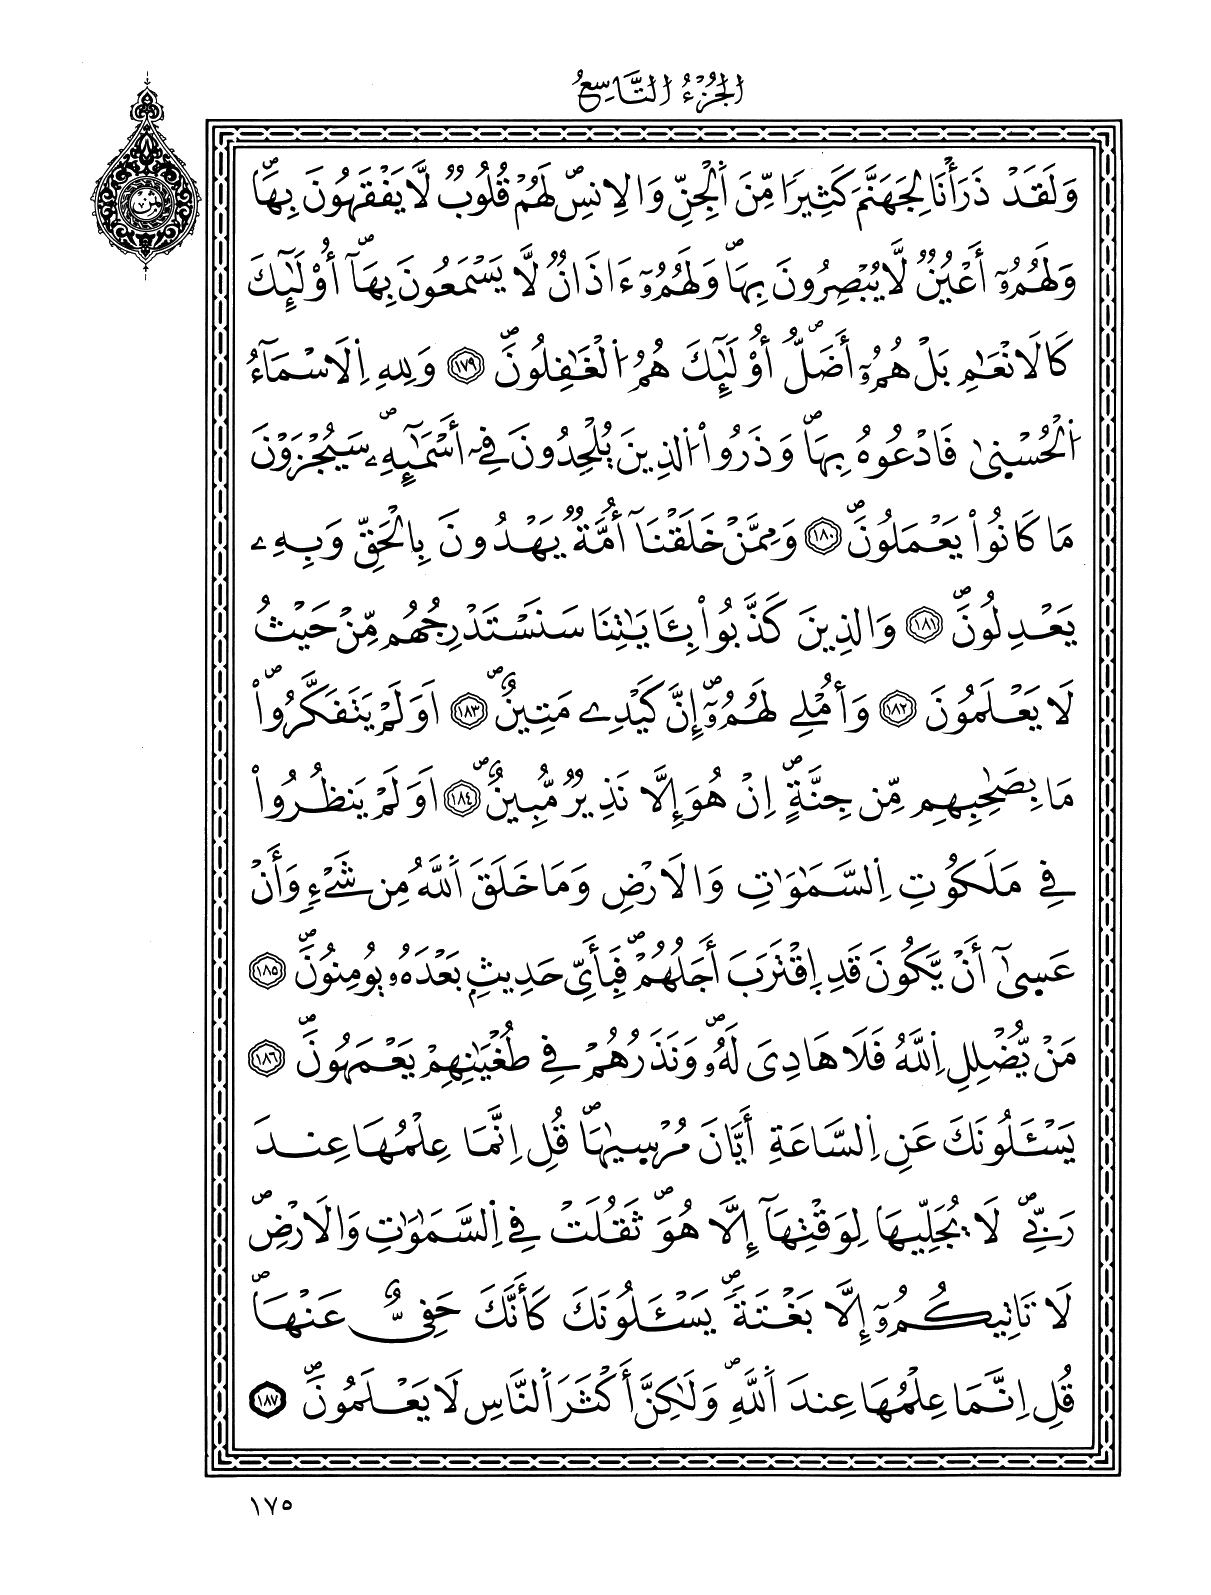 الجُزْءُ التَّاسِعُ
وَلَقَدْ ذَرَأْنَا لِجَهَنَّمَ كَثِيرًا مِّنَ اَ۬لْجِنِّ وَالِانسِۖ لَهُمْ قُلُوبٞ لَّا يَفْقَهُونَ بِهَاۖ
وَلَهُمُۥٓ أَعْيُنٞ لَّا يُبْصِرُونَ بِهَاۖ وَلَهُمُۥٓ ءَاذَانٞ لَّا يَسْمَعُونَ بِهَآۖ أُوْلَٰٓئِكَ
كَالَانْعَٰمِ بَلْ هُمُۥٓ أَضَلُّۖ أُوْلَٰٓئِكَ هُمُ اُ۬لْغَٰفِلُونَۖ ١٧٩ وَلِلهِ اِ۬لَاسْمَآءُ
اُ۬لْحُسْنۭيٰ فَادْعُوهُ بِهَاۖ وَذَرُواْ اُ۬لذِينَ يُلْحِدُونَ فِےٓ أَسْمَٰٓئِهِۦۖ سَيُجْزَوْنَ
مَا كَانُواْ يَعْمَلُونَۖ ١٨٠ وَمِمَّنْ خَلَقْنَآ أُمَّةٞ يَهْدُونَ بِالْحَقِّ وَبِهِۦ
يَعْدِلُونَۖ ١٨١ وَالذِينَ كَذَّبُواْ بِـَٔايَٰتِنَا سَنَسْتَدْرِجُهُم مِّنْ حَيْثُ
لَا يَعْلَمُونَ ١٨٢ وَأُمْلِے لَهُمُۥٓۖ إِنَّ كَيْدِے مَتِينٌۖ ١٨٣ اَوَلَمْ يَتَفَكَّرُواْۖ
مَا بِصَٰحِبِهِم مِّن جِنَّةٍۖ اِنْ هُوَ إِلَّا نَذِيرٞ مُّبِينٌۖ ١٨٤ اَوَلَمْ يَنظُرُواْ
فِے مَلَكُوتِ اِ۬لسَّمَٰوَٰتِ وَالَارْضِ وَمَا خَلَقَ اَ۬للَّهُ مِن شَےْءٖ وَأَنْ
عَسۭيٰٓ أَنْ يَّكُونَ قَدِ اِ۪قْتَرَبَ أَجَلُهُمْۖ فَبِأَيِّ حَدِيثِۢ بَعْدَهُۥ يُومِنُونَۖ ١٨٥
مَنْ يُّضْلِلِ اِ۬للَّهُ فَلَا هَادِيَ لَهُۥۖ وَنَذَرُهُمْ فِے طُغْيَٰنِهِمْ يَعْمَهُونَۖ ١٨٦
يَسْـَٔلُونَكَ عَنِ اِ۬لسَّاعَةِ أَيَّانَ مُرْسۭيٰهَاۖ قُلِ اِنَّمَا عِلْمُهَا عِندَ
رَبِّےۖ لَا يُجَلِّيهَا لِوَقْتِهَآ إِلَّا هُوَۖ ثَقُلَتْ فِے اِ۬لسَّمَٰوَٰتِ وَالَارْضِۖ
لَا تَاتِيكُمُۥٓ إِلَّا بَغْتَةٗۖ يَسْـَٔلُونَكَ كَأَنَّكَ حَفِيٌّ عَنْهَاۖ
قُلِ اِنَّمَا عِلْمُهَا عِندَ اَ۬للَّهِۖ وَلَٰكِنَّ أَكْثَرَ اَ۬لنَّاسِ لَا يَعْلَمُونَۖ ١٨٧
١٧٥